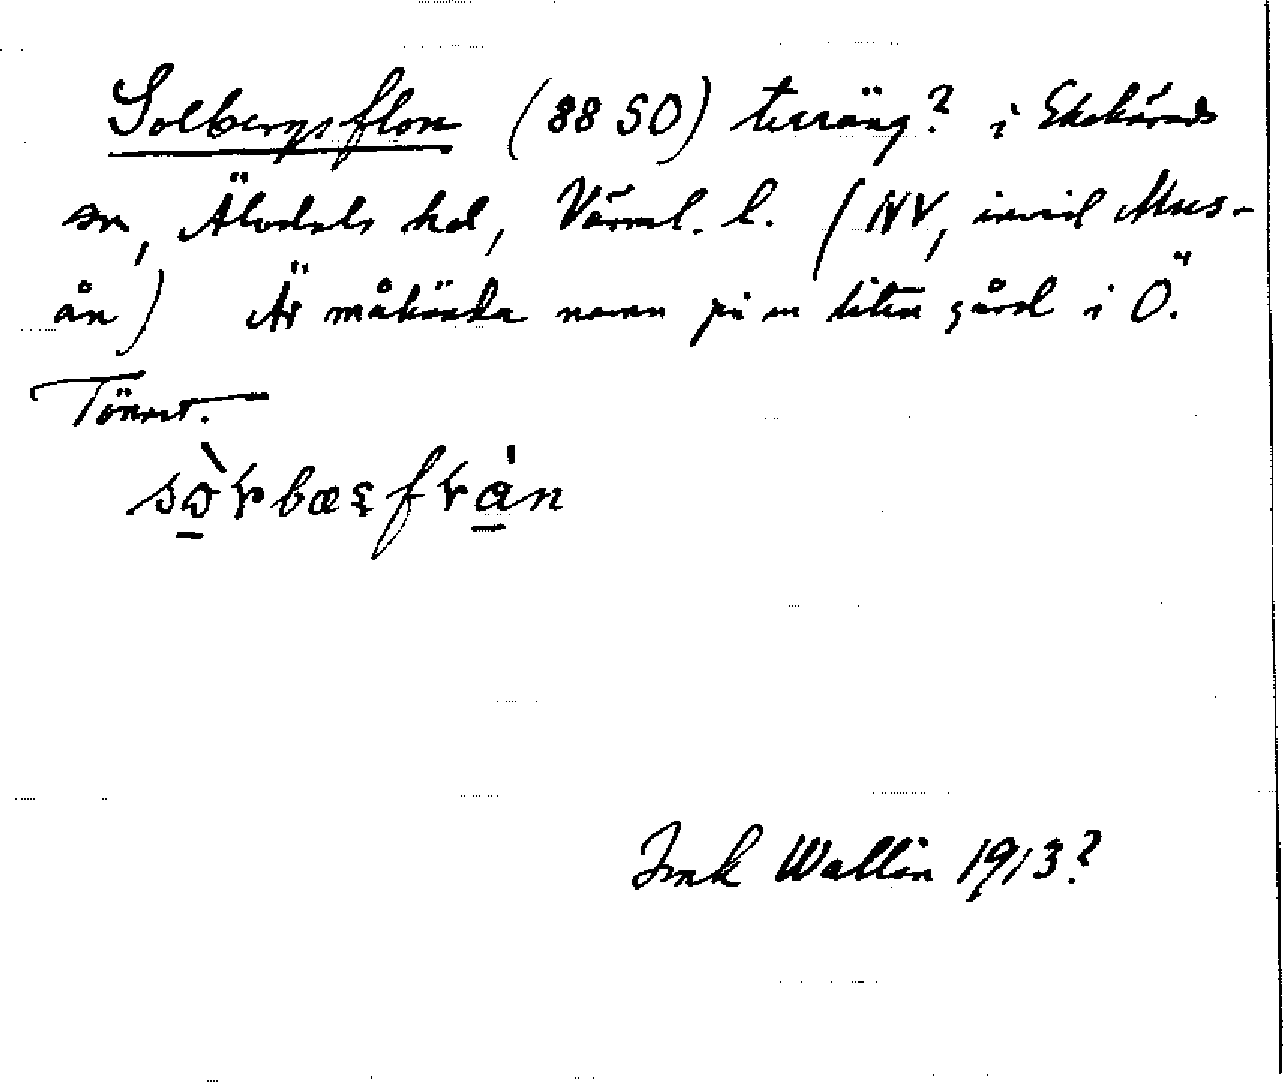 Solbergsflon (88 SO) terräng? i Ekshärads
sn, Älvdals hd, Värml. l. (NV, invid Mus-
ån) Är måhända namn på en liten gård i Ö.
Tönnet.
Wallin 1913?